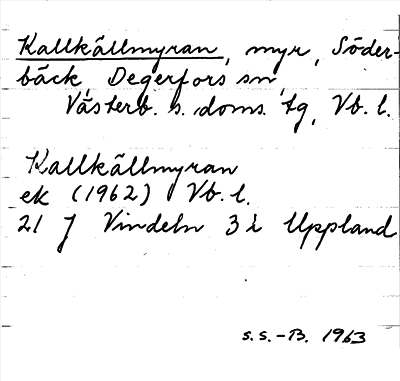 Kallkällmyran, myr, Söder-
bäck, Degerfors sn,
Västerb. s. doms. tg, Vb. l.
Kallkällmyran
ek (1962) Vb. l.
21 J Vindeln 3 i Uppland
S.S.-B. 1963